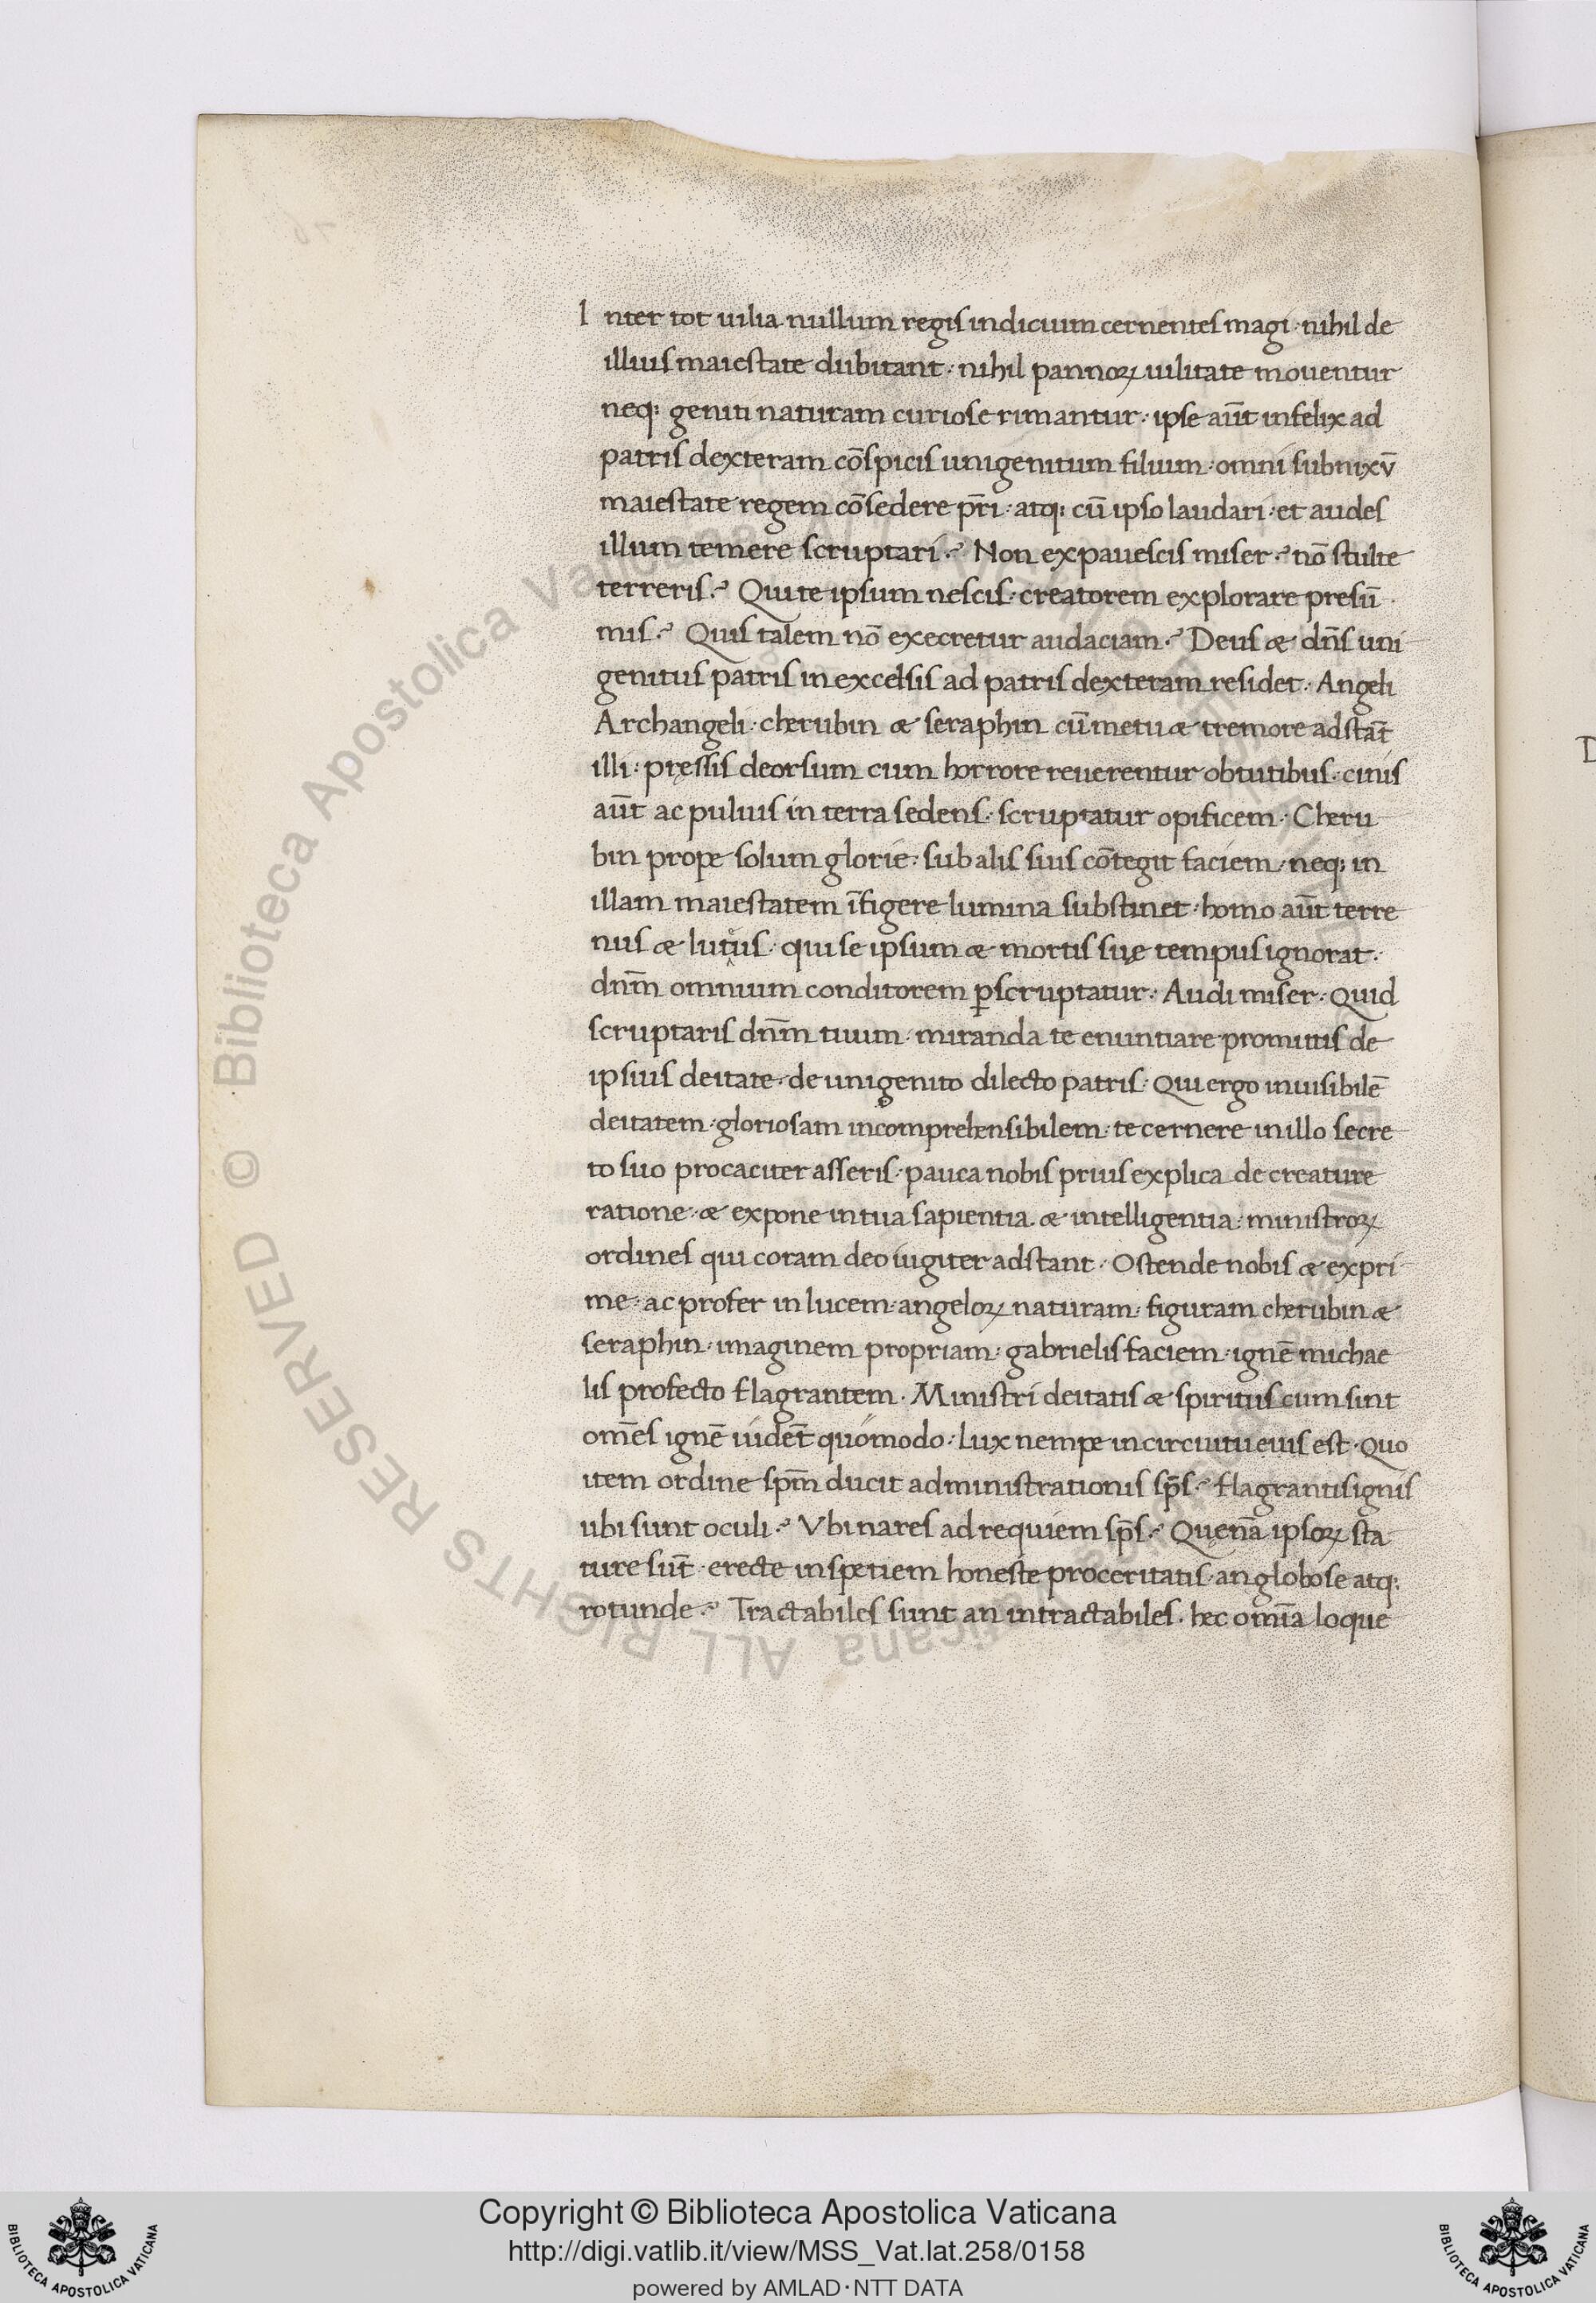 Inter tot uilia nullum regis indicium cernentes magi · nihil de
illius maiestate dubitant · nihil pannoꝝ uilitate mouentur
neq; geniti naturam curiose rimantur · ipse aūt infelix ad
patris dexteram cōspicis unigenitum filium · omni subnixū
maiestate regem cōsedere pr̄i · atq; cū ipso laudari · et audes
illum temere scruptari? Non expauescis miser? nō stulte
terreris? Qui te ipsum nescis · creatorem explorare presū
mis? Quis talem nō execretur audaciam? Deus & dn̄s uni
genitus patris in excelsis ad patris dexteram residet · Angeli
Archangeli · cherubin & seraphin cū metu & tremore adstāt
illi · pręssis deorsum cum horrore reuerentur obtutibus · cinis
aūt ac puluis in terra sedens · scruptatur opificem · Cheru
bin prope solum glorie · sub alis suis cōtegit faciem · neq; in
illam maiestatem īfigere lumina substinet · homo aūt terre
nus & luteus · qui se ipsum & mortis suę tempus ignorat ·
dn̄m omnium conditorem ꝑscruptatur · Audi miser · Quid
scruptaris dn̄m tuum · miranda te enuntiare promittis de
ipsius deitate · de unigenito dilecto patris · Qui ergo inuisibilē
deitatem · gloriosam incomprehensibilem · te cernere in illo secre
to suo procaciter asseris · pauca nobis prius explica de creature
ratione · & expone in tua sapientia & intelligentia · ministroꝝ
ordines qui coram deo iugiter adstant · Ostende nobis & expri
me · ac profer in lucem · angeloꝝ naturam · figuram cherubin &
seraphin · imaginem propriam · gabrielis faciem · ignē michae
lis profecto flagrantem · Ministri deitatis & spiritus cum sint
omēs ignē uidēt quomodo · Lux nempe in circuitu eius est · Quo
item ordine sp̄m ducit administrationis sp̄s? flagrantis ignis
ubi sunt oculi? Vbi nares ad requiem sp̄s? Quęnā ipsoꝝ sta
ture sūt · erecte in spetiem honeste proceritatis · an globose atq;
rotunde? Tractabiles sunt an intractabiles · hec omīa loque
© Biblioteca Apostolica Vaticana ALL RIGHTS RESERVED
Copyright © Biblioteca Apostolica Vaticana
http://digi.vatlib.it/view/MSS_Vat.lat.258/0158
powered by AMLAD·NTT DATA
BIBLIOTECA APOSTOLICA VATICANA
BIBLIOTECA APOSTOLICA VATICANA